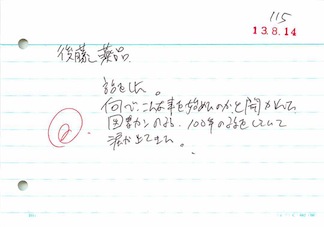 115
13.8.14
後藤薬品
話をした。
何で、こんな事を始めたのかと聞かれて、
100年の話をしていて
涙が出てきた。